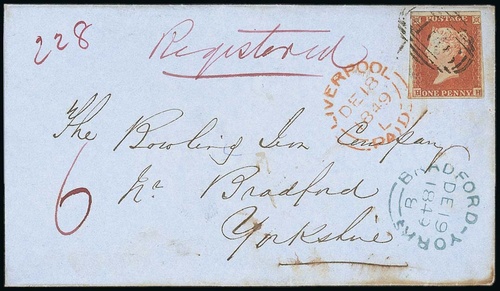 228
Registered
POSTAGE
ONE PENNY
LIVERPOOL
DE 18
1849
L
PAID
The Bowling Iron Company
Nr. Bradford
Yorkshire
6
BRADFORD-YORKS
DE 19
1849